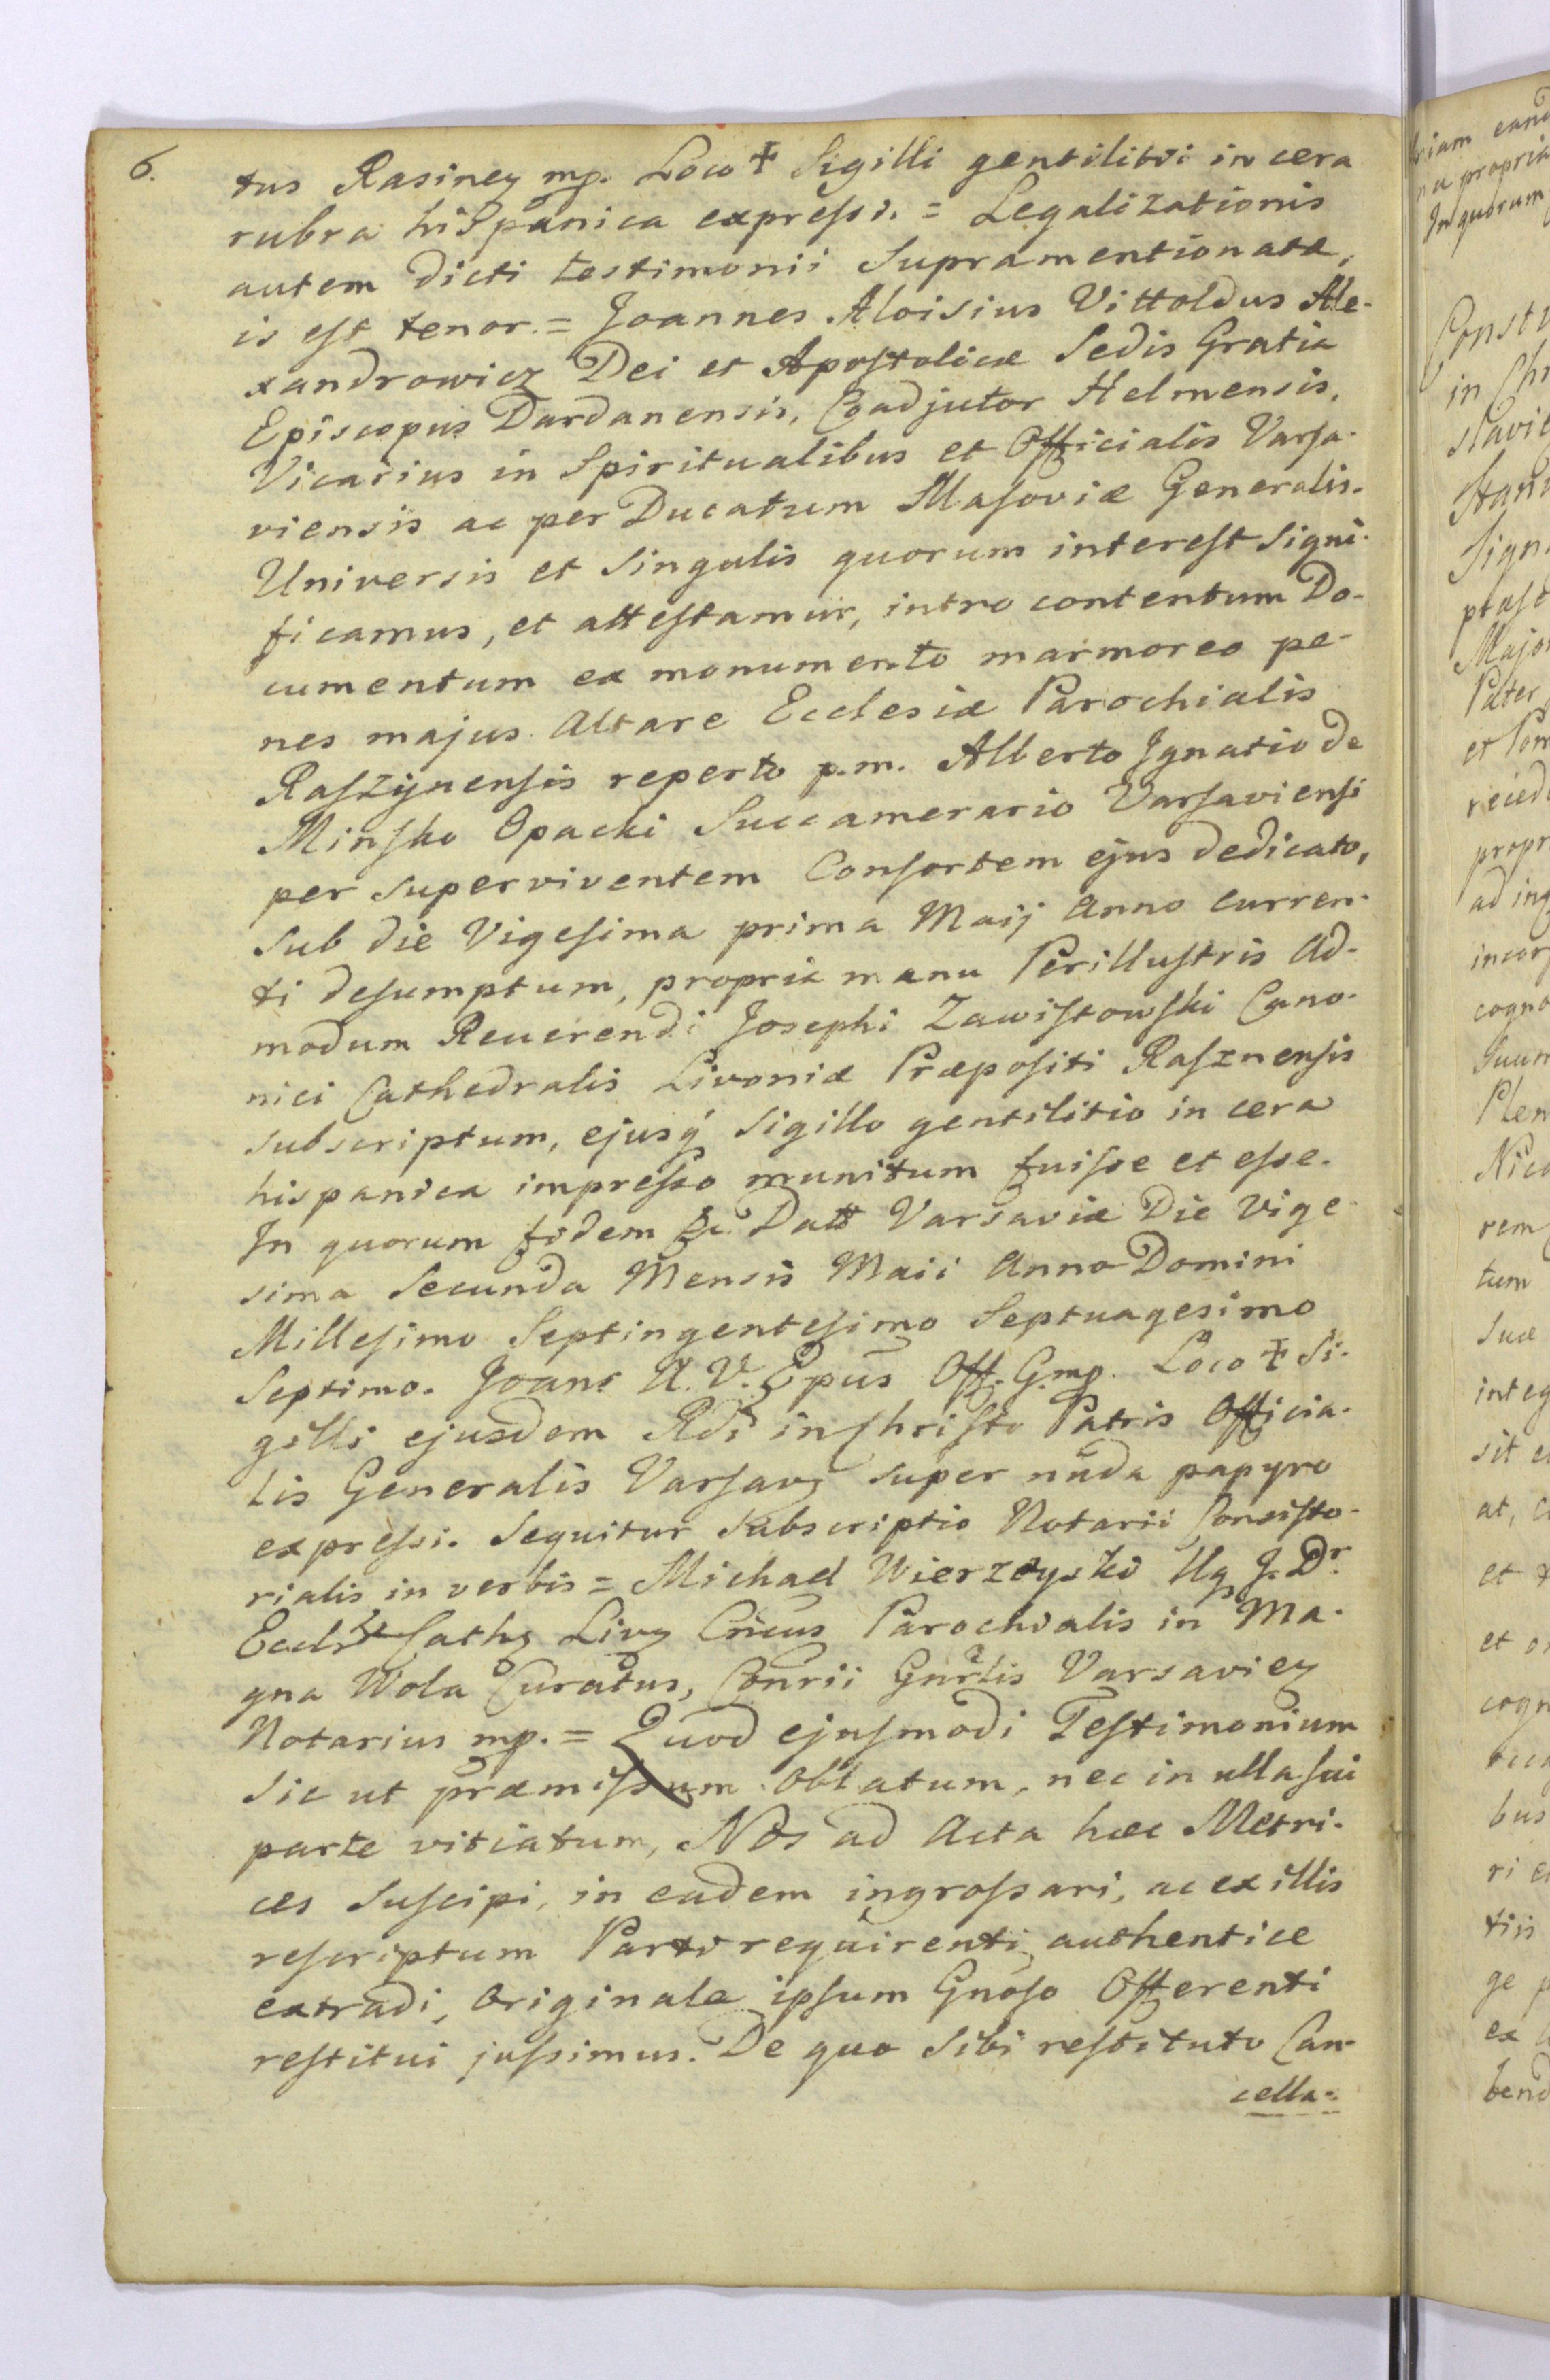 6.
tus Rasiney mp. Loco ☩ Sigilli gentilitii in cera
rubra hispanica expreſsi. = Legalizationis
autem dicti testimonii Supramentionatæ,
is eſt tenor. = Joannes Aloisius Vittoldus Ale-
xandrowicz Dei et Apoſtolicæ Sedis Gratia
Episcopus Dardanensis, Coadjutor Helmensis,
Vicarius in Spiritualibus et Officialis Varſa-
viensis ac per Ducatum Maſoviæ Generalis.
Universis et Singulis quorum intereſt Signi-
ficamus, et atteſtamur, intro contentum Do-
cumentum ex monumento marmoreo pe-
nes majus Altare Ecclesiæ Parochialis
Raſzÿnenſis reperto p.m. Alberto Ignatio de
Minſko Opacki Succamerario Varſavienſi
per superviventem Conſortem ejus dedicato,
Sub die Vigeſima prima Maij Anno curren-
ti deſumptum, propria manu Perilluſtris Ad-
modum Reverendi Josephi Zawiſtowſki Cano-
nici Cathedralis Livoniæ Præpoſiti Raſznenſis
subscriptum, ejusq́ Sigillo gentilitio in cera
hispanica impreſso munitum fuiſse et eſse.
In quorum fidem &c. Datt Varsaviæ Die Vige-
sima Secunda Mensis Maii Anno Domini
Milleſimo Septingenteſimo Septuagesimo
Septimo. Joans A. V. Epus Off. G. mp. Loco ☩ Si-
gilli ejusdem Rdi in Chriſto Patris Officia-
lis Generalis Varſavꝫ super nuda papyro
expreſsi. Sequitur Subscriptio Notarii Conſiſto-
rialis in verbis = Michael Wierzbyski J. Dr.
Cathꝫ Livꝫ Cñcus Parochialis in Ma-
gna Wola Curatus, Conrii Gnrlis Varsavieꝫ
Notarius mp. = Quod ejuſmodi Teſtimonium
Sic ut præmiſsum oblatum, nec in ulla ſui
parte vitiatum, Nos ad Acta hæc Metri-
ces Suſcipi, in eadem ingroſsari, ac ex illis
reſcriptum Parti requirenti authentice
extradi, Originale ipſum Gnoso Offerenti
reſtitui juſsimus. De quo Sibi reſtituto Can-
cella-